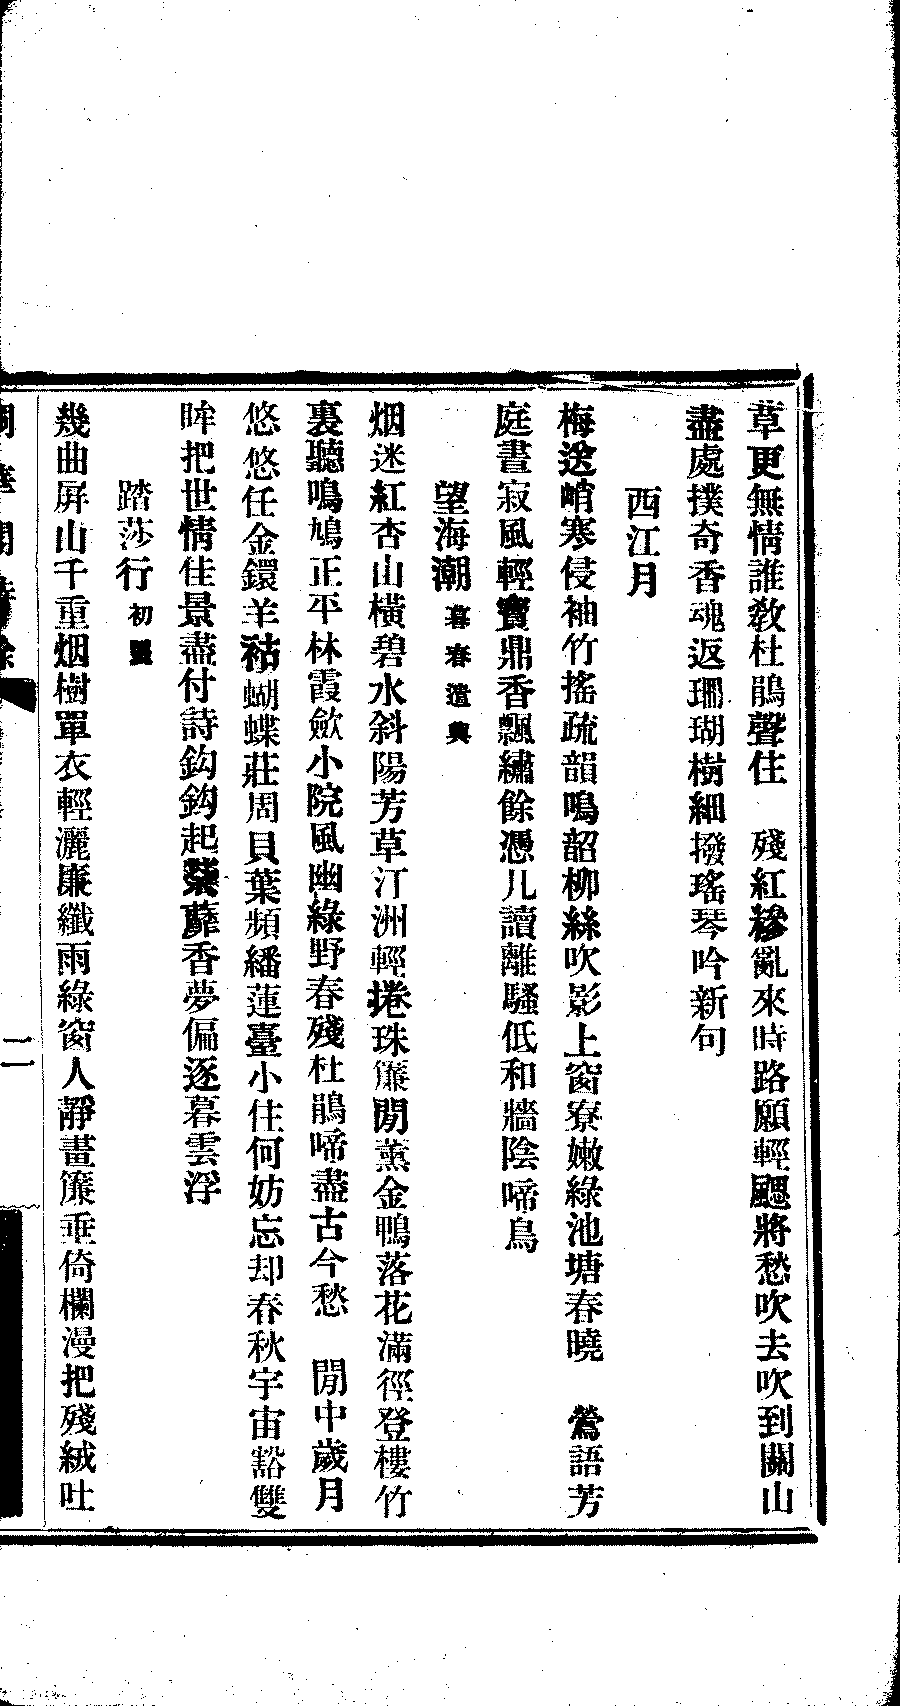 草更無情誰教杜鵑聲住　殘紅糝亂來時路願輕颸將愁吹去吹到關山
盡處撲奇香魂返珊瑚樹細撥瑤琴吟新句
西江月
梅送峭寒侵袖竹搖疏韻鳴韶柳絲吹影上窗寮嫩綠池塘春曉　鶯語芳
庭晝寂風輕寶鼎香飄繡餘憑几讀離騷低和牆陰啼鳥
望海潮 暮春遣興
烟迷紅杏山橫碧水斜陽芳草汀洲輕捲珠簾閒薰金鴨落花滿徑登樓竹
裏聽鳴鳩正平林霞斂小院風幽綠野春殘杜鵑啼盡古今愁　閒中歲月
悠悠任金鐶羊祜蝴蝶莊周貝葉頻繙蓮臺小住何妨忘却春秋宇宙豁雙
眸把世情佳景盡付詩鈎鈎起荼蘼香夢偏逐暮雲浮
踏莎行 初夏
幾曲屏山千重烟樹單衣輕灑廉纖雨綠窗人靜畫簾垂倚欄漫把殘絨吐
二